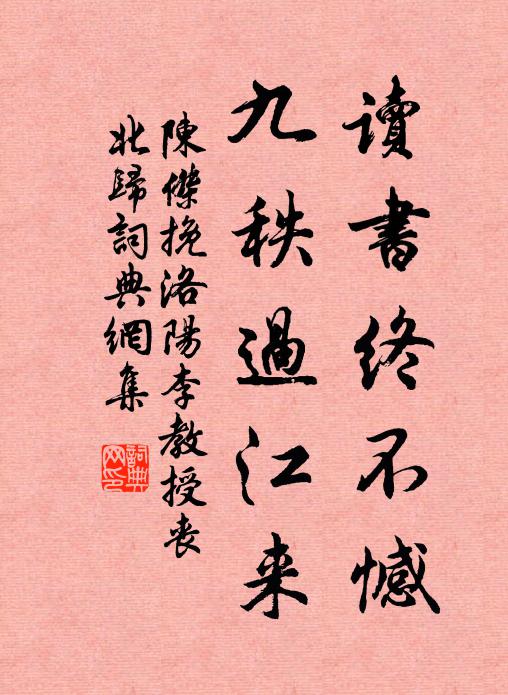 讀書終不憾
九秩過江来
陳傑挽洛陽李教授喪
北歸詞典網集
詞典网印